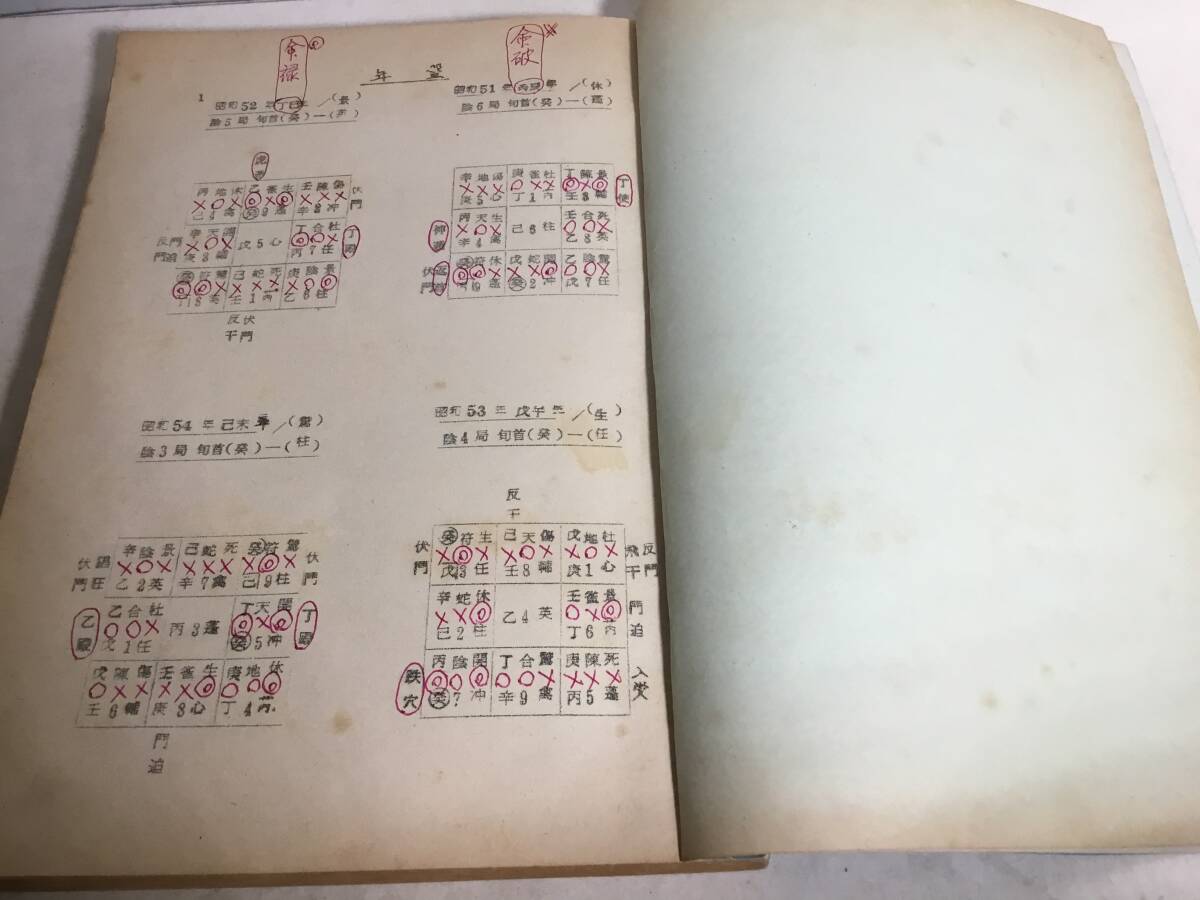 年盤
命破
昭和51年丙辰年/(休)
陰6局 旬首(癸)―(蓬)
辛地傷 庚雀杜 丁陳景
×××　×××　◎◎×
庚5心 丁1丙 壬3輔
丁使
丙天生 壬合死
×○× 己6柱 ○○×
辛4禽 乙8英
癸符休 戊蛇開 乙陰驚
◎◎× ××◎ ○○×
9蓬 癸2冲 戊7任
伏門
1
命禄
昭和52年丁巳年/(景)
陰5局 旬首(癸)―(丙)
丙地休 乙雀生 壬陳傷
×○× ◎×◎ ×××
乙4禽 癸9蓬 辛2冲
伏門
反門
門迫
辛天開 丁合杜
×○× 戊5心 ◎○×
庚3輔 丙7任
癸符驚 己蛇死 庚陰景
◎◎× ××× ×○○
8英 壬1丙 乙6柱
反干
伏門
昭和53年戊午年/(生)
陰4局 旬首(癸)―(任)
反干
伏門
癸符生 己天傷 戊地杜
×◎× ×○× ×○×
戊3任 壬8輔 庚1心
反門
飛干
辛蛇休 壬雀景
××◎ 乙4英 ××◎
己2柱 丁6丙
門迫
丙陰開 丁合驚 庚陳死
◎○◎ ○○× ×××
癸7冲 辛9禽 丙5蓬
跌穴
昭和54年己未年/(驚)
陰3局 旬首(癸)―(柱)
伏門
辛陰景 己蛇死 癸符驚
×○× ××× ×◎×
乙2英 辛7禽 己9柱
伏門
乙合杜 丁天開
○○× 丙3蓬 ◎×◎
戊1任 癸5冲
戊陳傷 壬雀生 庚地休
○×× ××◎ ○○◎
壬6輔 庚8心 丁4丙
門迫